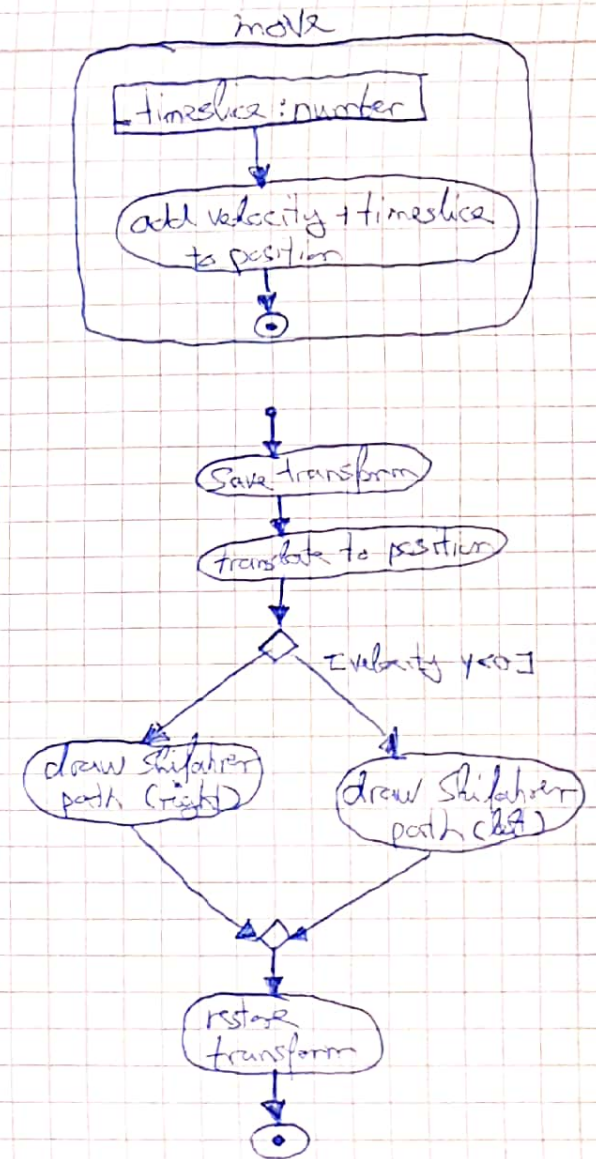 move
_timeslice : number
add velocity + timeslice
to position
Save transform
translate to position
[velocity y<0]
draw Skifahrer
path (right)
draw Skifahrer
path (left)
restore
transform